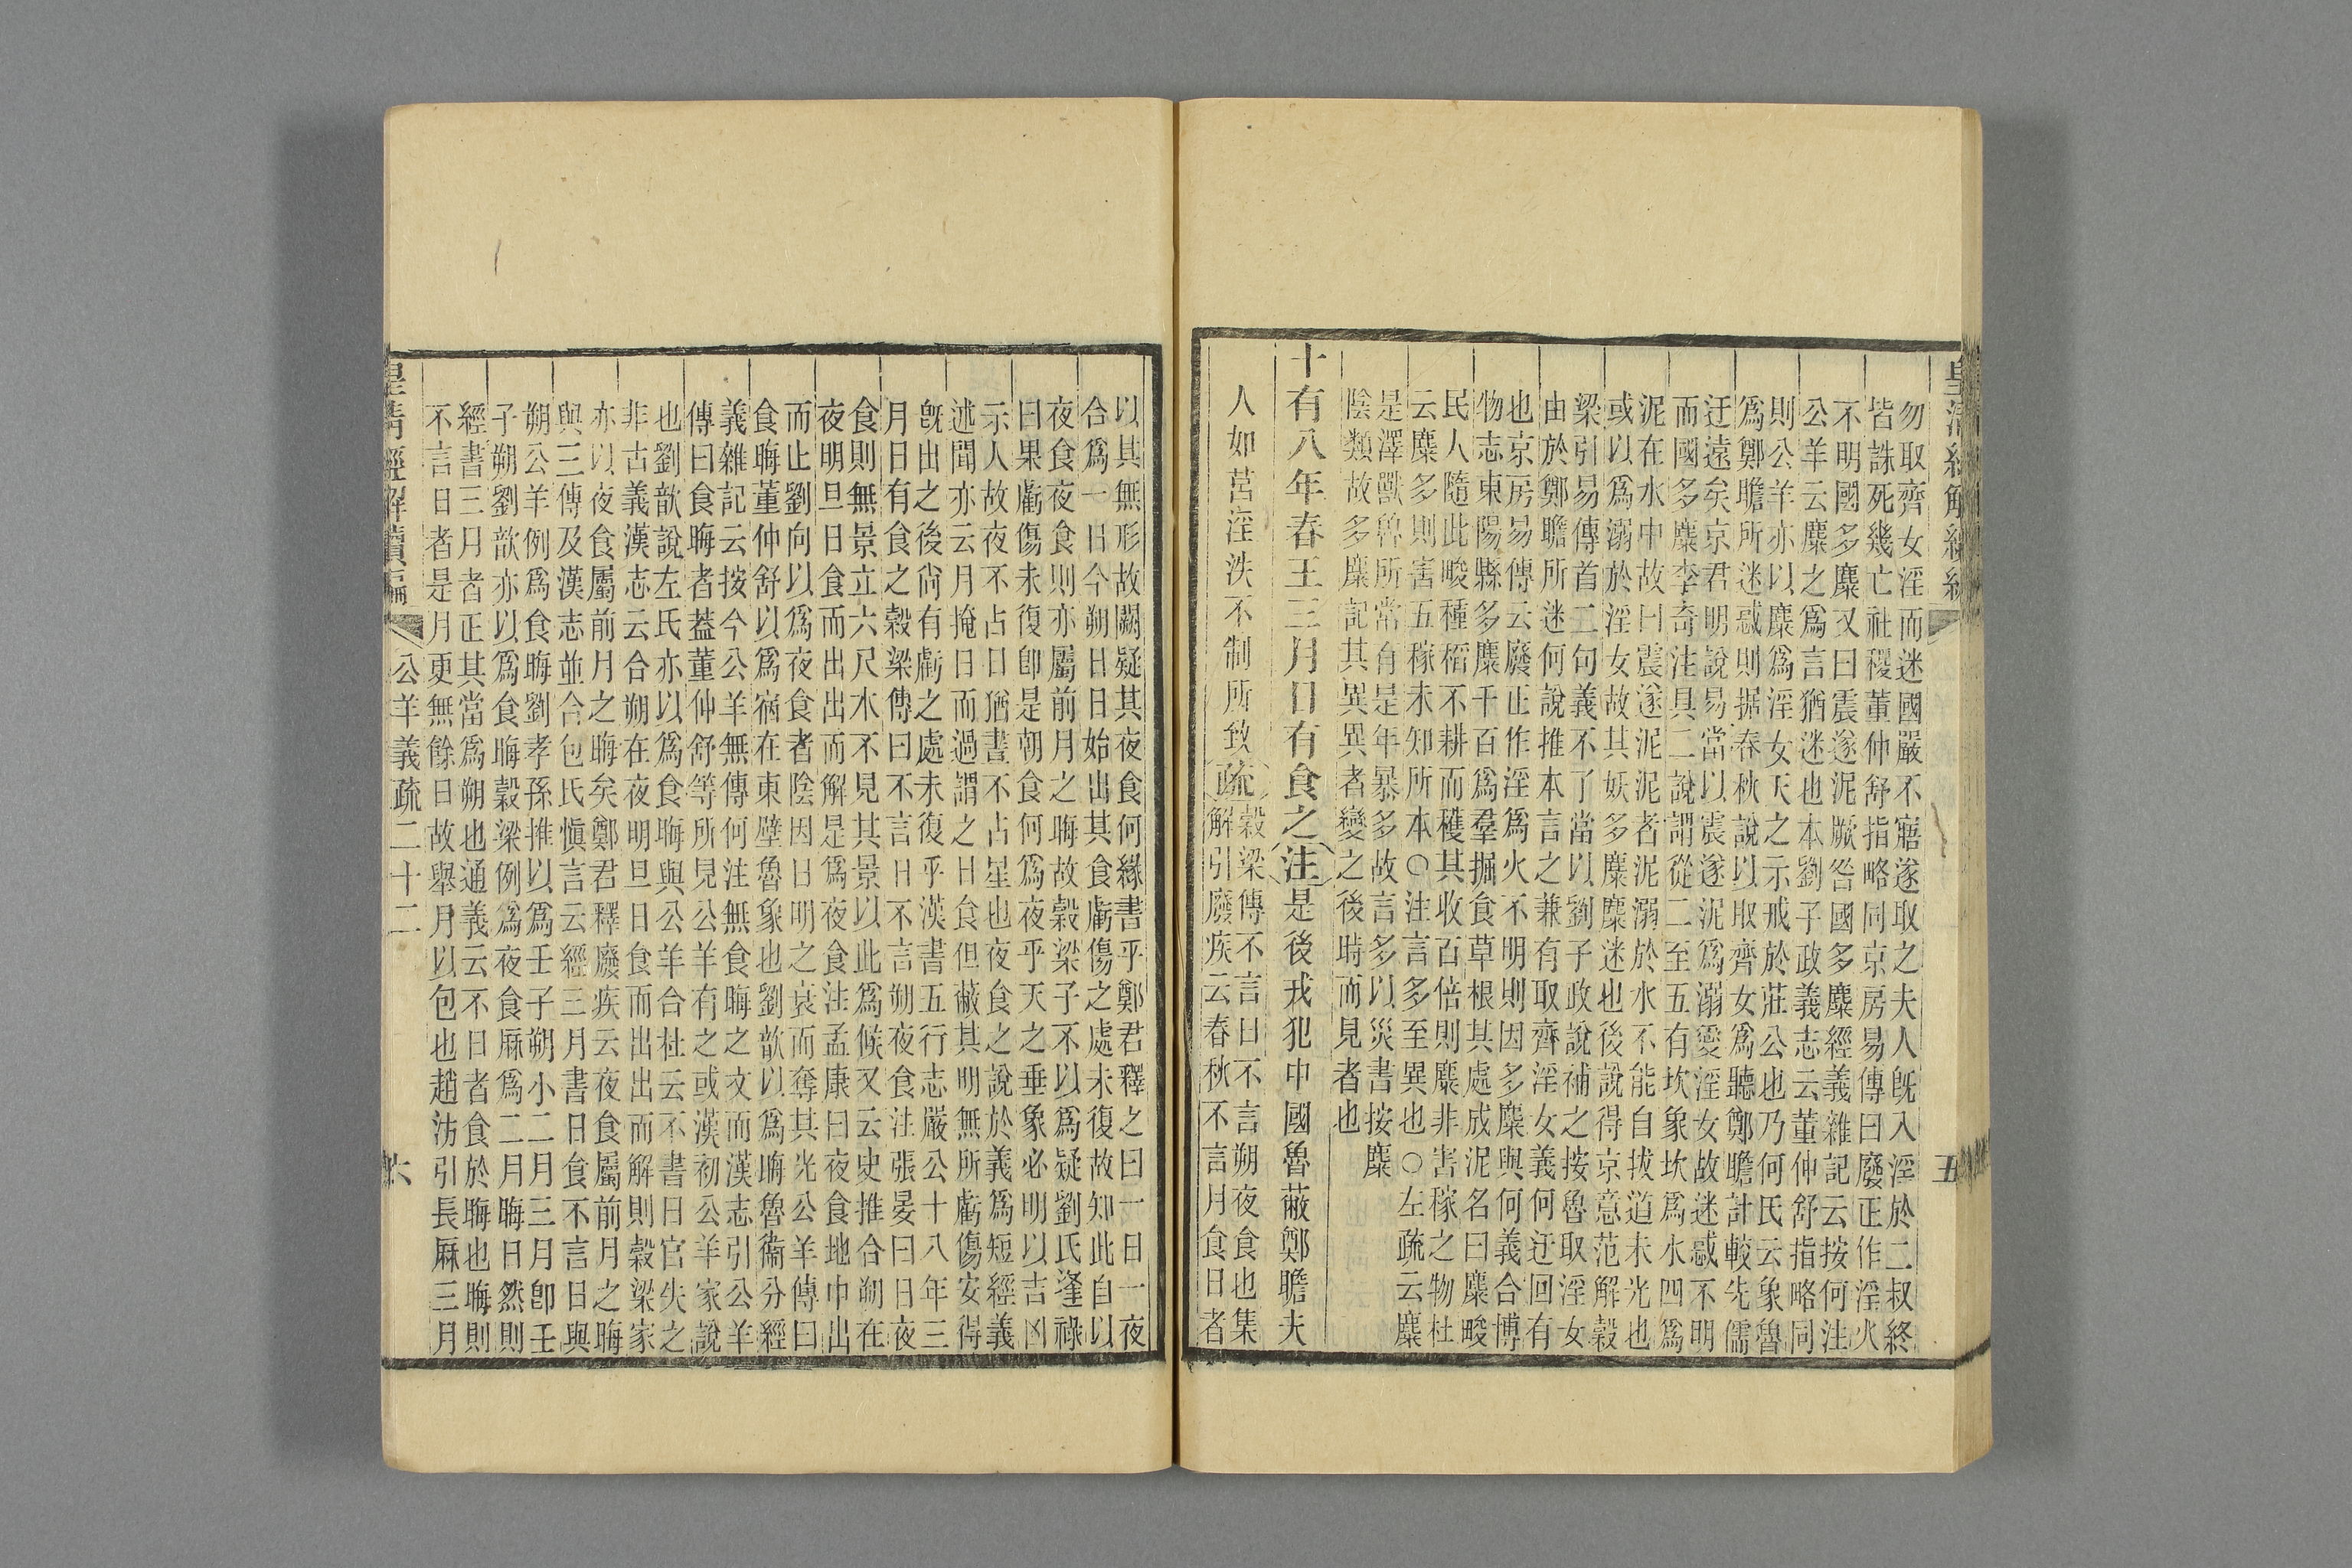 勿取齊女淫而迷國嚴不寤遂取之夫人旣入淫於二叔終
皆誅死幾亡社稷董仲舒指略同京房易傳曰廢正作淫火
不明國多麋又曰震遂泥厥咎國多麋經義雜記云按何注
公羊云麋之爲言猶迷也本劉子政義志云董仲舒指略同
則公羊亦以麋爲淫女天之示戒於莊公也乃何氏云象魯
爲鄭瞻所迷惑則据春秋說以取齊女爲聽鄭瞻計較先儒
迂遠矣京君明說易當以震遂泥爲溺變淫女故迷惑不明
而國多麋李奇注具二說謂從二至五有坎象坎爲水四爲
泥在水中故曰震遂泥泥者泥溺於水不能自拔道未光也
或以爲溺於淫女故其妖多麋麋迷也後說得京意范解穀
梁引易傳首二句義不了當以劉子政說補之按魯取淫女
由於鄭瞻所迷何說推本言之兼有取齊淫女義何迂回有
也京房易傳云廢正作淫爲火不明則因多麋與何義合博
物志東陽縣多麋千百爲羣掘食草根其處成泥名曰麋畯
民人隨此畯種稻不耕而穫其收百倍則麋非害稼之物杜
云麋多則害五稼未知所本○注言多至異也○左疏云麋
是澤獸魯所常有是年暴多故言多以災書按麋
陰類故多麋記其異異者變之後時而見者也
十有八年春王三月日有食之注是後戎犯中國魯蔽鄭瞻夫
人如莒淫泆不制所致疏穀梁傳不言日不言朔夜食也集
解引廢疾云春秋不言月食日者
五
以其無形故闕疑其夜食何緣書乎鄭君釋之曰一日一夜
合爲一日今朔日日始出其食虧傷之處未復故知此自以
夜食夜食則亦屬前月之晦故穀梁子不以爲疑劉氏逢祿
曰果虧傷未復卽是朝食何爲夜乎天之垂象必明以吉凶
示人故夜不占日猶晝不占星也夜食之說於義爲短經義
述聞亦云月掩日而過謂之日食但蔽其明無所虧傷安得
旣出之後尙有虧之處未復乎漢書五行志嚴公十八年三
月日有食之穀梁傳曰不言日不言朔夜食注張晏曰日夜
食則無景立六尺木不見其景以此爲候又云史推合朔在
夜明旦日食而出出而解是爲夜食注孟康曰夜食地中出
而止劉向以爲夜食者陰因日明之衰而奪其光公羊傳曰
食晦董仲舒以爲宿在東壁魯象也劉歆以爲晦魯衞分經
義雜記云按今公羊無傳何注無食晦之文而漢志引公羊
傳曰食晦者蓋董仲舒等所見公羊有之或漢初公羊家說
也劉歆說左氏亦以爲食晦與公羊合杜云不書日官失之
非古義漢志云合朔在夜明旦日食而出出而解則穀梁家
亦以夜食屬前月之晦矣鄭君釋廢疾云夜食屬前月之晦
與三傳及漢志並合包氏愼言云經三月書日食不言日與
朔公羊例爲食晦劉孝孫推以爲壬子朔小二月三月卽壬
子朔劉歆亦以爲食晦穀梁例爲夜食厤爲二月晦日然則
經書三月者正其當爲朔也通義云不日者食於晦也晦則
不言日者是月更無餘日故舉月以包也趙汸引長厤三月
皇淸經解續編
公羊義疏二十二
六